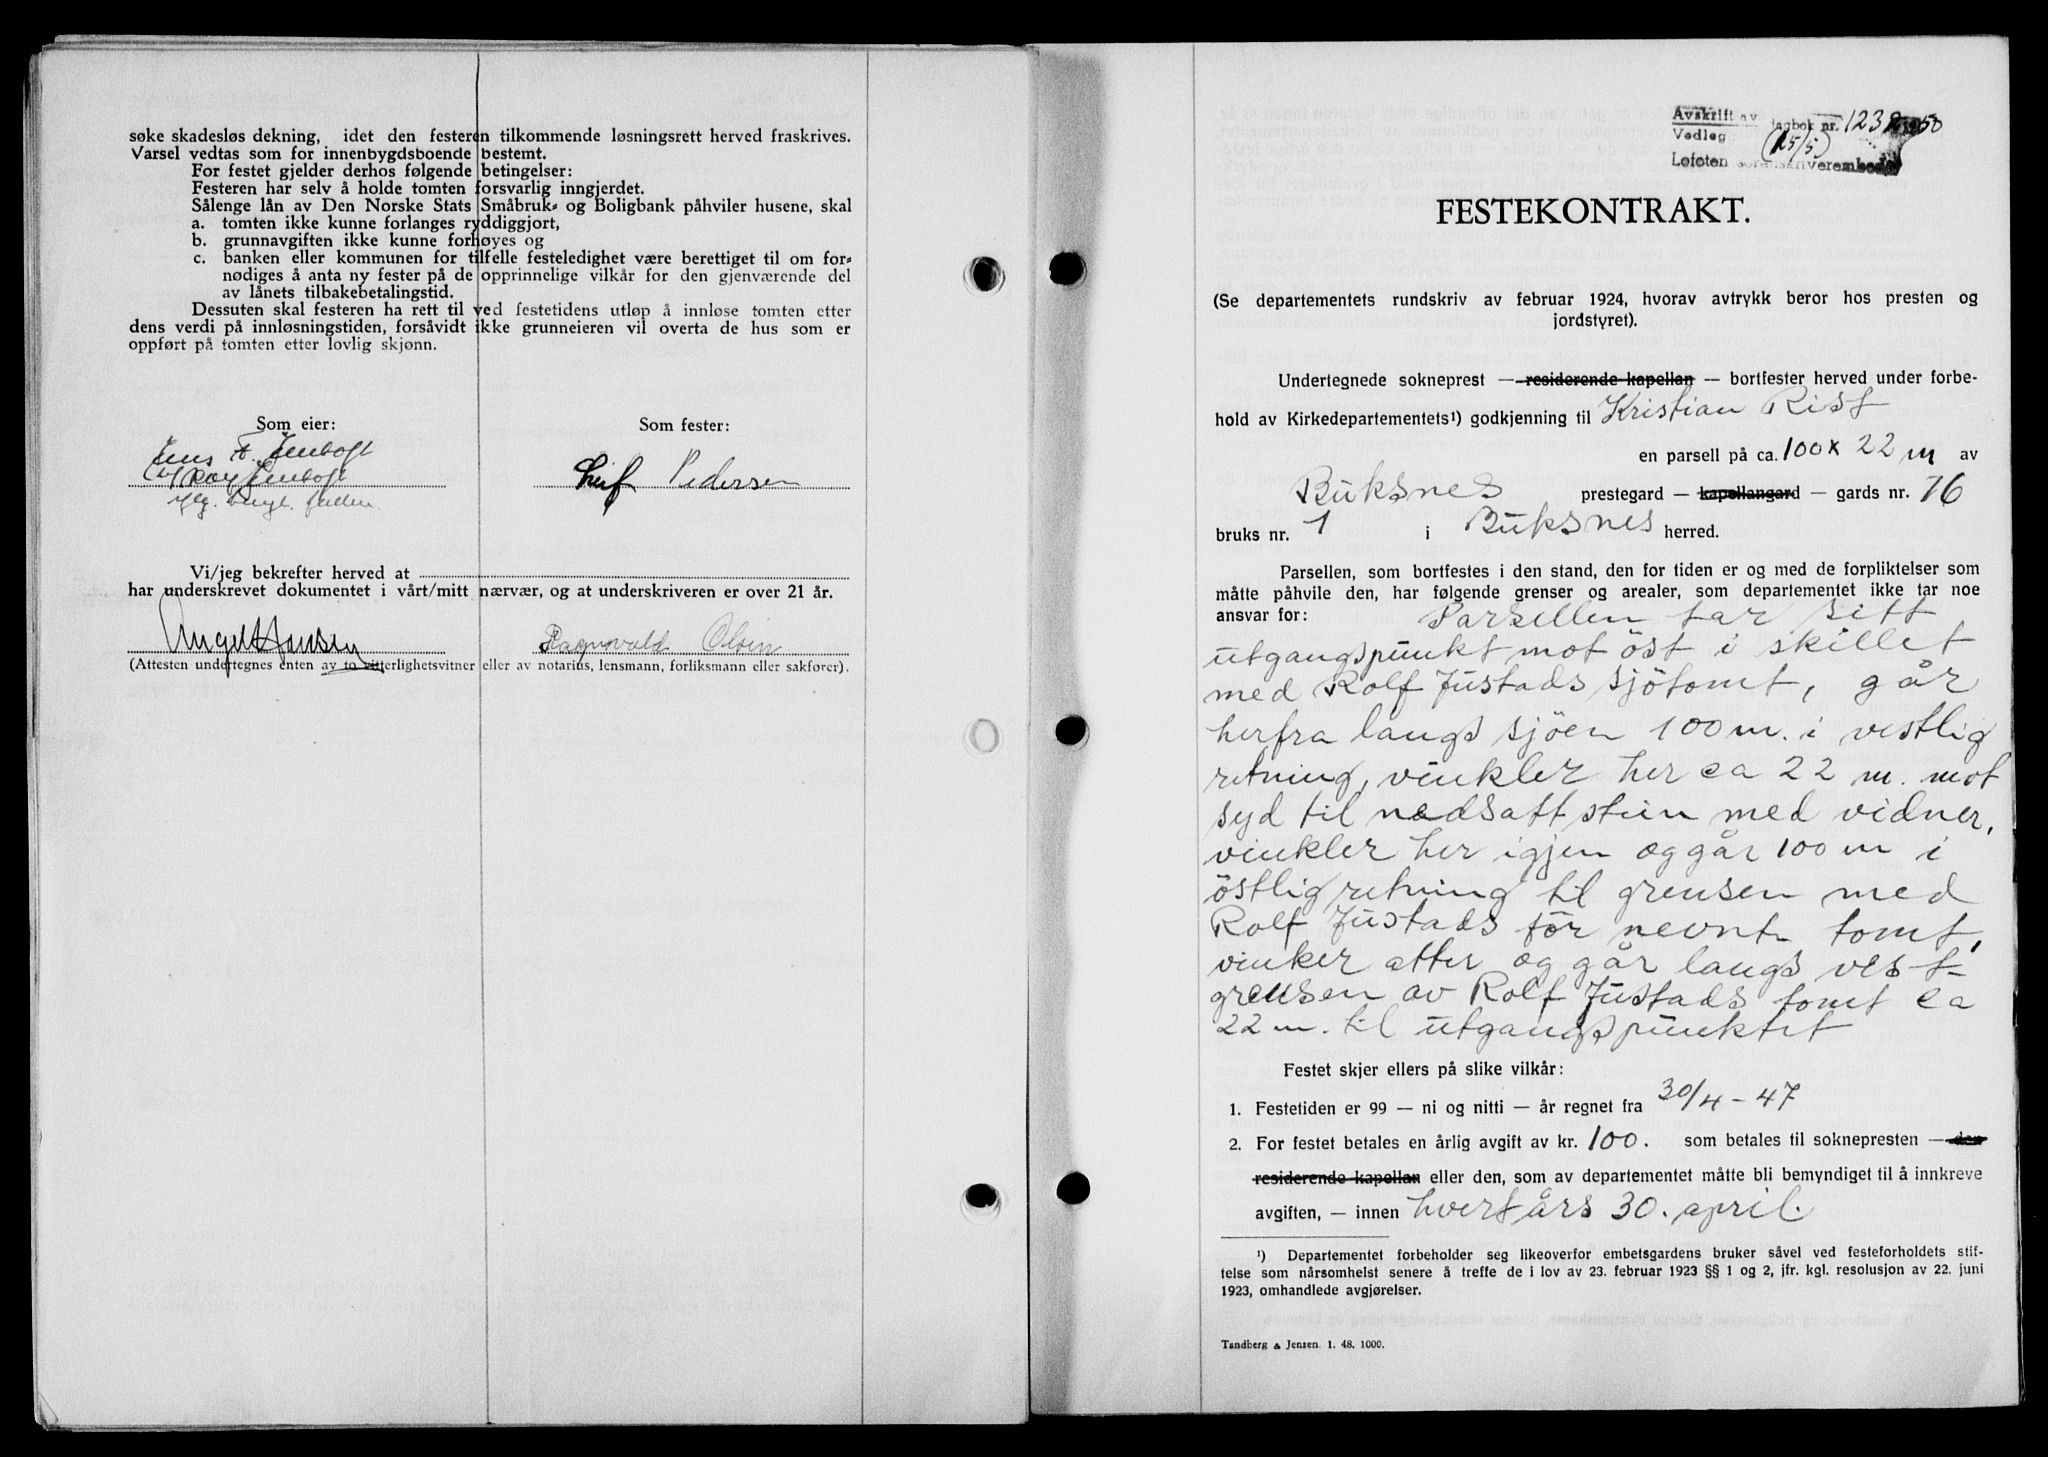 søke skadesløs dekning, idet den festeren tilkommende løsningsrett herved fraskrives.
Varsel vedtas som for innenbygdsboende bestemt.
For festet gjelder derhos følgende betingelser:
Festeren har selv å holde tomten forsvarlig inngjerdet.
Sålenge lån av Den Norske Stats Småbruk- og Boligbank påhviler husene, skal
a. tomten ikke kunne forlanges ryddiggjort,
b. grunnavgiften ikke kunne forhøyes og
c. banken eller kommunen for tilfelle festeledighet være berettiget til om for-
nødiges å anta ny fester på de opprinnelige vilkår for den gjenværende del
av lånets tilbakebetalingstid.
Dessuten skal festeren ha rett til ved festetidens utløp å innløse tomten etter
dens verdi på innløsningstiden, forsåvidt ikke grunneieren vil overta de hus som er
oppført på tomten etter lovlig skjønn.
Som eier:
Som fester:
Jens F. Jentoft
Jentoft
Leif Pedersen
Vi/jeg bekrefter herved at
har underskrevet dokumentet i vårt/mitt nærvær, og at underskriveren er over 21 år.
Angell Hansen
Ragnvald Olsen
(Attesten undertegnes enten av to vitterlighetsvitner eller av notarius, lensmann, forliksmann eller sakfører).
Avskrift av
Vedleg
dagbok nr. 1238 1950
(15/5)
Lofoten sorenskriverembede
FESTEKONTRAKT.
(Se departementets rundskriv av februar 1924, hvorav avtrykk beror hos presten og
jordstyret).
Undertegnede sokneprest — residerende kapellan — bortfester herved under forbe-
hold av Kirkedepartementets¹) godkjenning til Kristian Rist
en parsell på ca. 100 x 22 m av
Buksnes prestegard — kapellangard — gards nr. 16
bruks nr. 1 i Buksnes herred.
Parsellen, som bortfestes i den stand, den for tiden er og med de forpliktelser som
måtte påhvile den, har følgende grenser og arealer, som departementet ikke tar noe
ansvar for: Parsellen tar sitt
utgangspunkt mot öst i skillet
med Rolf Justads sjötomt, går
herfra langs sjöen 100 m. i vestlig
retning, vinkler her ca 22 m. mot
syd til nedsatt stein med vidner,
vinkler her igjen og går 100 m i
östlig retning til grensen med
Rolf Justads för nevnte tomt,
vinker atter og går langs vest-
grensen av Rolf Justads tomt ca
22 m. til utgangspunktet
Festet skjer ellers på slike vilkår:
1. Festetiden er 99 — ni og nitti — år regnet fra 30/4 - 47
2. For festet betales en årlig avgift av kr. 100. som betales til soknepresten — den
residerende kapellan eller den, som av departementet måtte bli bemyndiget til å innkreve
avgiften, — innen hvert års 30. april.
¹) Departementet forbeholder seg likeoverfor embetsgardens bruker såvel ved festeforholdets stif-
telse som nårsomhelst senere å treffe de i lov av 23. februar 1923 §§ 1 og 2, jfr. kgl. resolusjon av 22. juni
1923, omhandlede avgjørelser.
Tandberg & Jensen 1. 48. 1000.